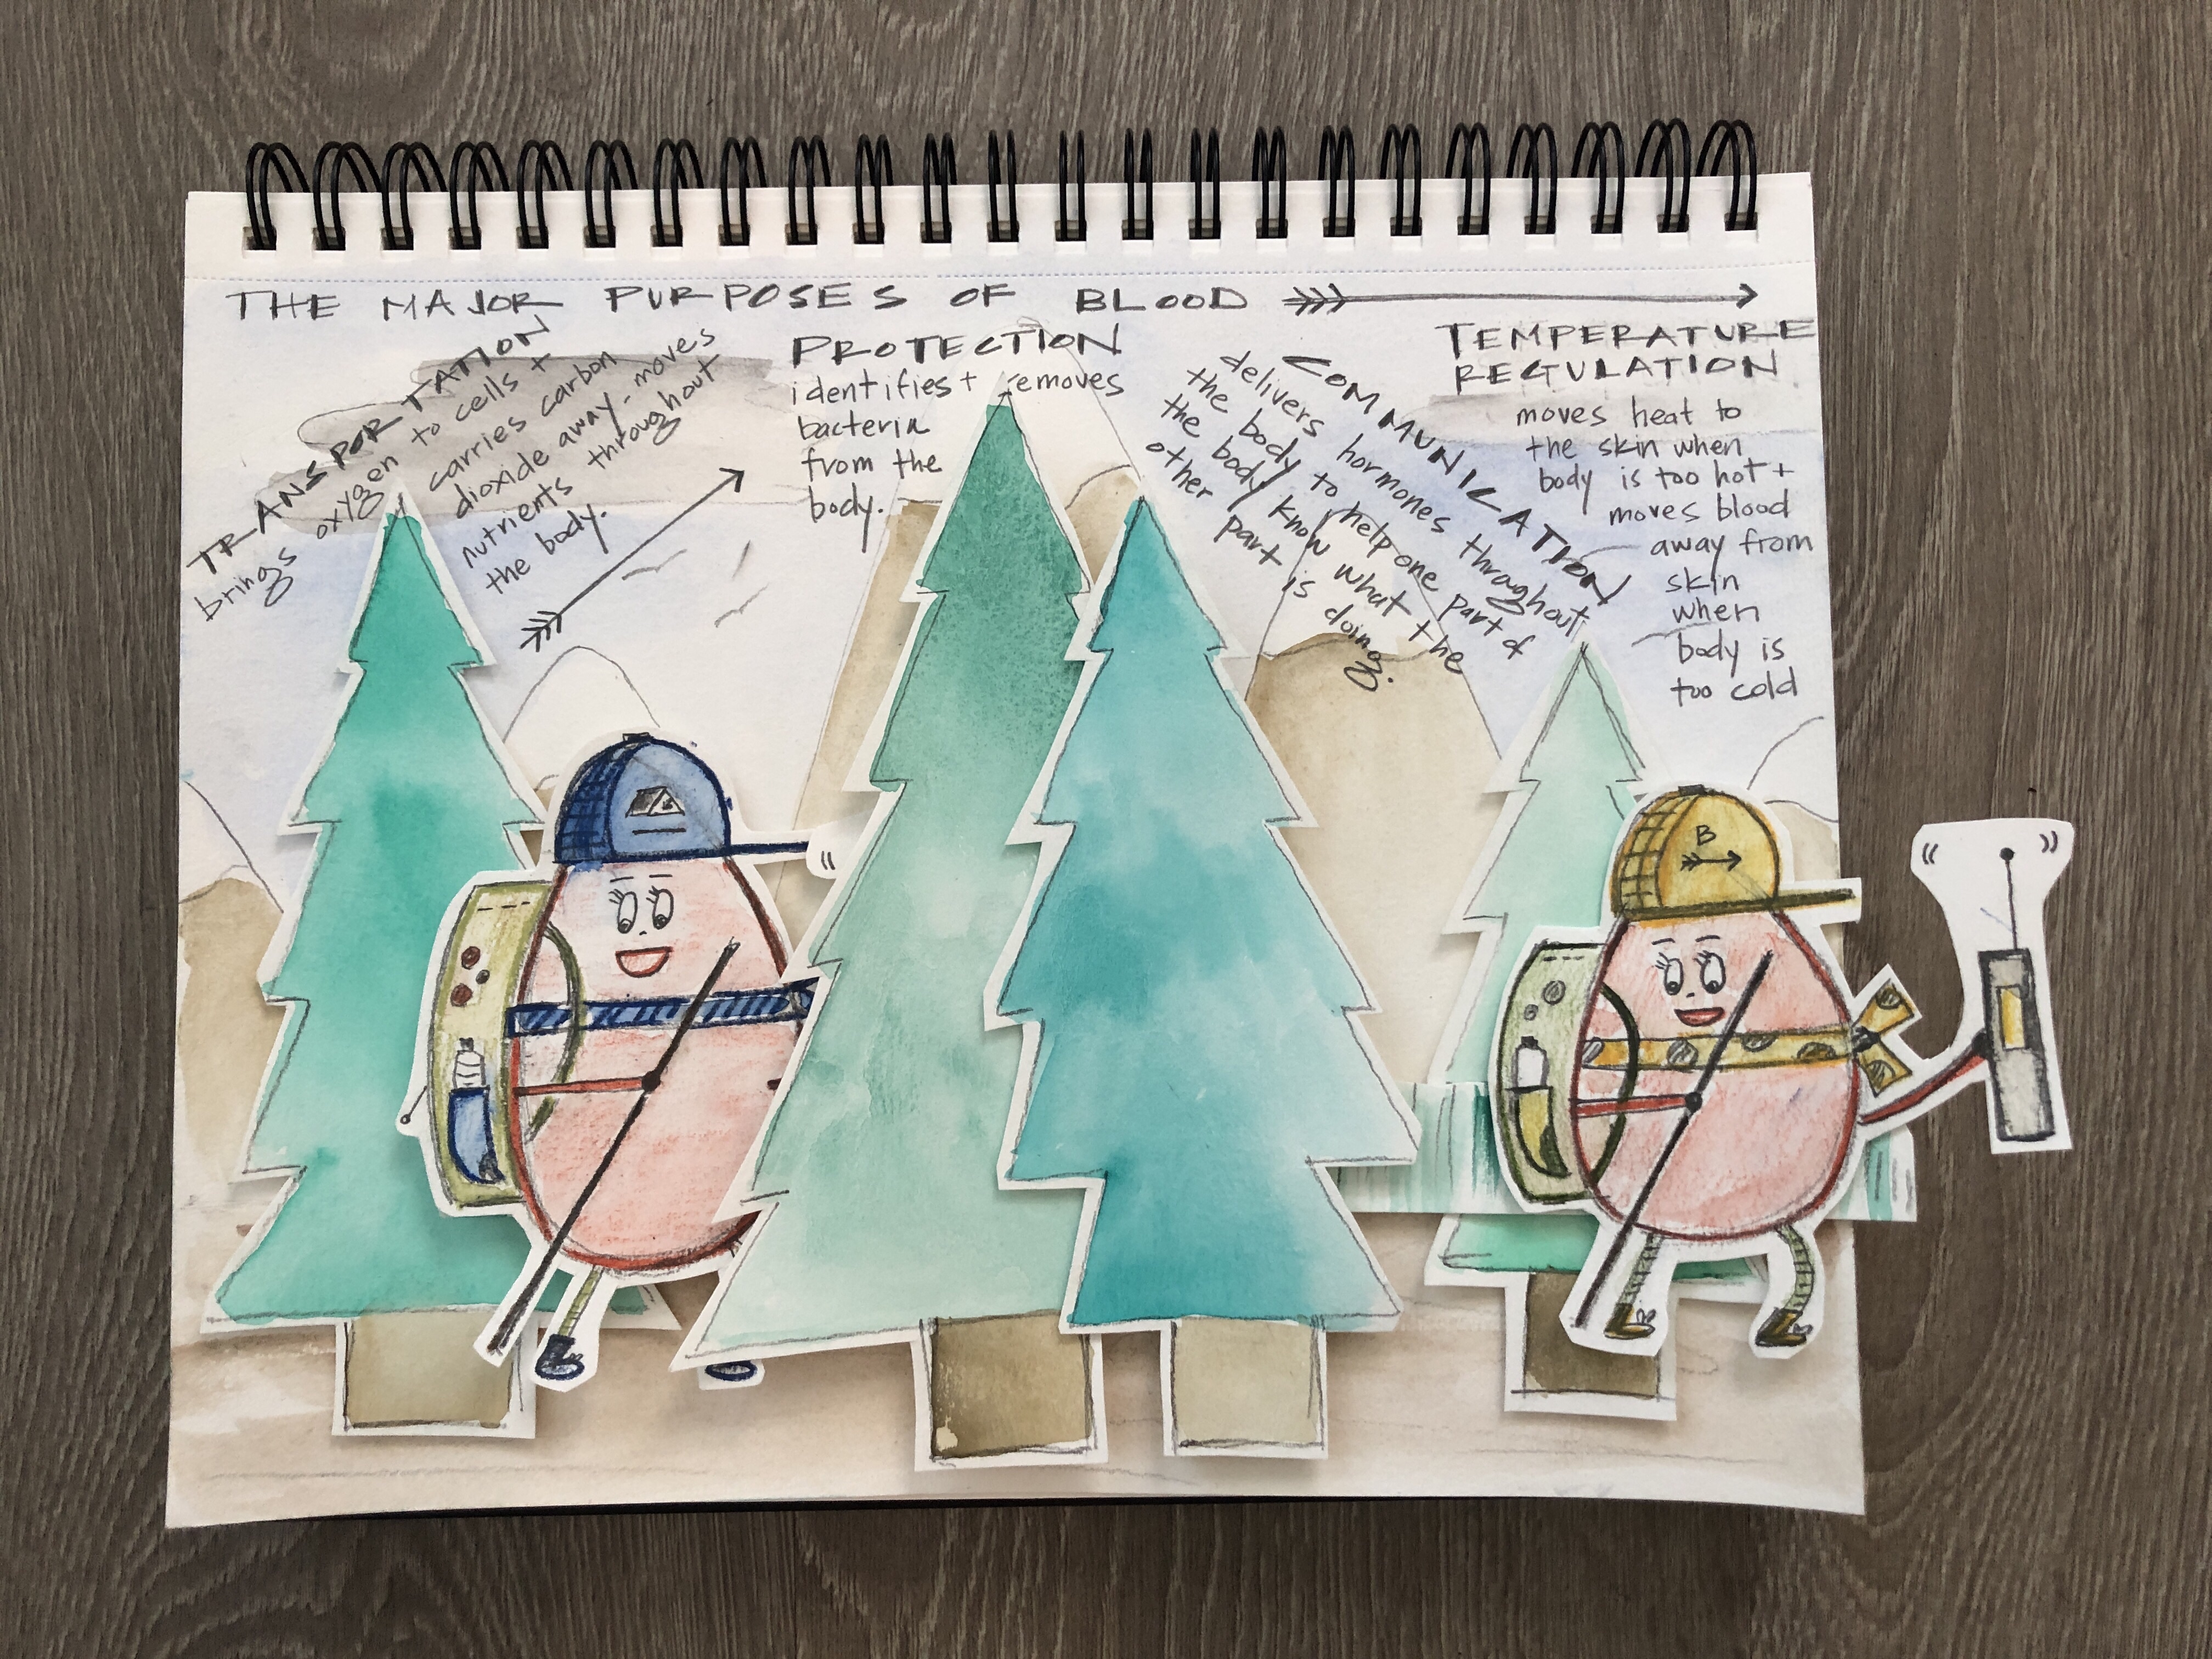 THE MAJOR PURPOSES OF BLOOD
TRANSPORTATION
brings oxygen to cells +
carries carbon
dioxide away. moves
nutrients throughout
the body.
PROTECTION
identifies + removes
bacteria
from the
body.
COMMUNICATION
delivers hormones throughout
the body to help one part of
the body know what the
other part is doing.
TEMPERATURE
REGULATION
moves heat to
the skin when
body is too hot +
moves blood
away from
skin
when
body is
too cold
B